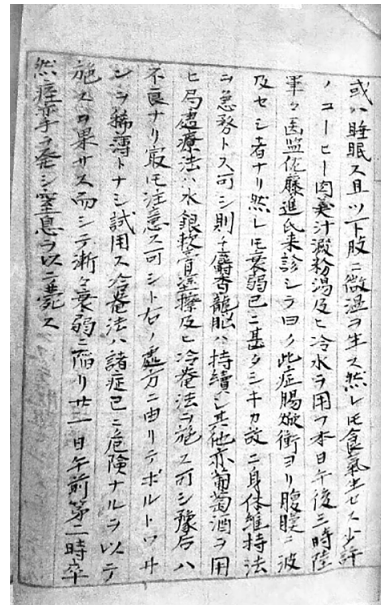 或ハ睡眠ス且ツ下肢ニ微温ヲ生ス然レ𪜈食氣ナシ少許
ノコーヒー肉羹汁澱粉湯及ヒ冷水ヲ用フ本日午後三時陸
軍々医監佐藤進氏来診シテ曰ク此症腸焮衝ヨリ腹膜ニ波
及セシ者ナリ然レ𪜈衰弱已ニ甚タシキカ故ニ身体維持法
ヲ急務トス可シ則チ麝香龍脳ハ持續シ其他赤葡萄酒ヲ用
ヒ局處療法ハ水銀軟膏塗擦及ヒ冷罨法ヲ施ス可シ豫后ハ
不良ナリ最モ注意ス可シト右ノ處方ニ由リテポルトワ井
ンヲ稀薄トナシ試用ス冷罨法ハ諸症已ニ危険ナルヲ以テ
施スヲ果サス而シテ漸々衰弱ニ陥リ廿二日午前第二時卒
然痙攣ヲ発シ窒息ヲ以テ斃ス